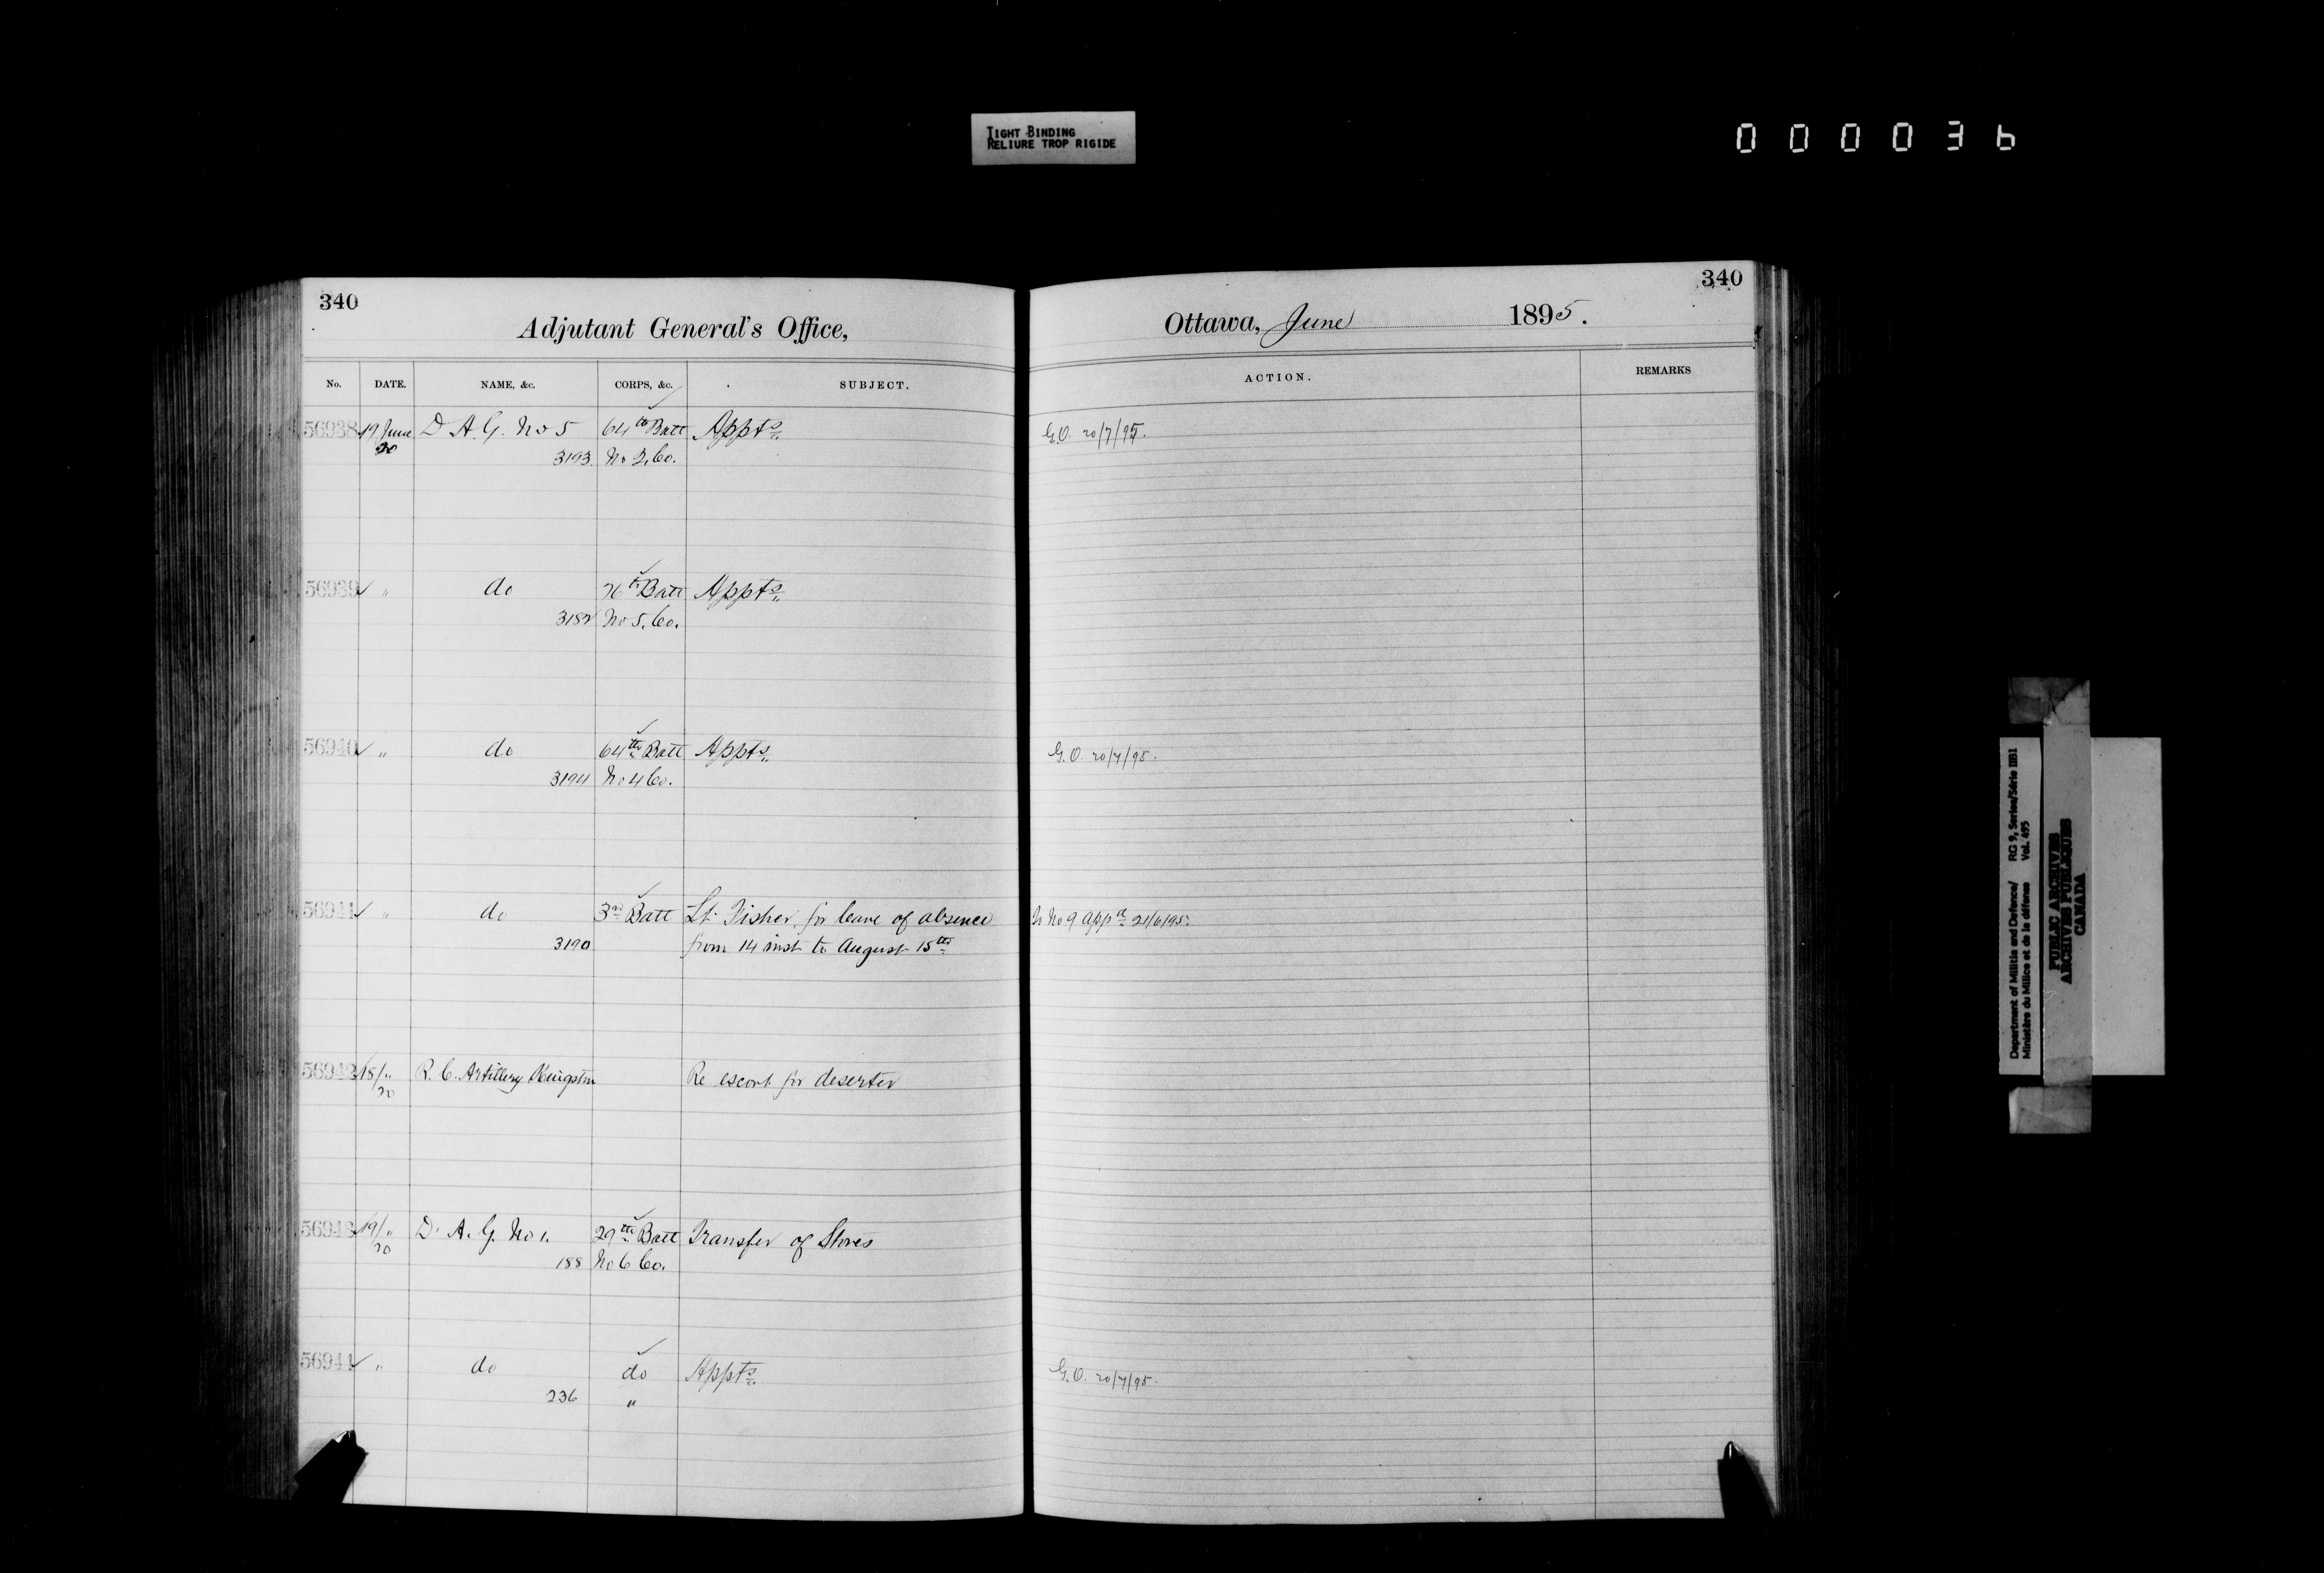 TIGHT BINDING
RELIURE TROP RIGIDE
000036
340
Adjutant General's Office,
No. DATE. NAME, &c. CORPS, &c. SUBJECT.
56938 19 June D A. G. No 5 64th Batt Appts
20 3193. No 2. Co.
56939 " do 76th Batt Appts
3182 No 5. Co.
56940 " do 64th Batt Appts
3194 No 4 Co.
56941 " do 3rd Batt Lt. Fisher. for leave of absence
3190 from 14 inst to August 15th
56942 18/" R. C. Artillery Kingston Re escort for deserter
20
56943 19/" D. A. G. No 1. 29th Batt Transfer of Stores
20 188 No 6 Co.
56944 " do do Appts
236 "
340
Ottawa, June 1895.
ACTION. REMARKS
G.O. 20/7/95.
G.O. 20/7/95.
To No. 9 appd 21/6/95.
G.O. 20/7/95.
Department of Militia and Defence/ RG 9, Series/Série IIB1
Ministère du Milice et de la défense Vol. 495
PUBLIC ARCHIVES
ARCHIVES PUBLIQUES
CANADA